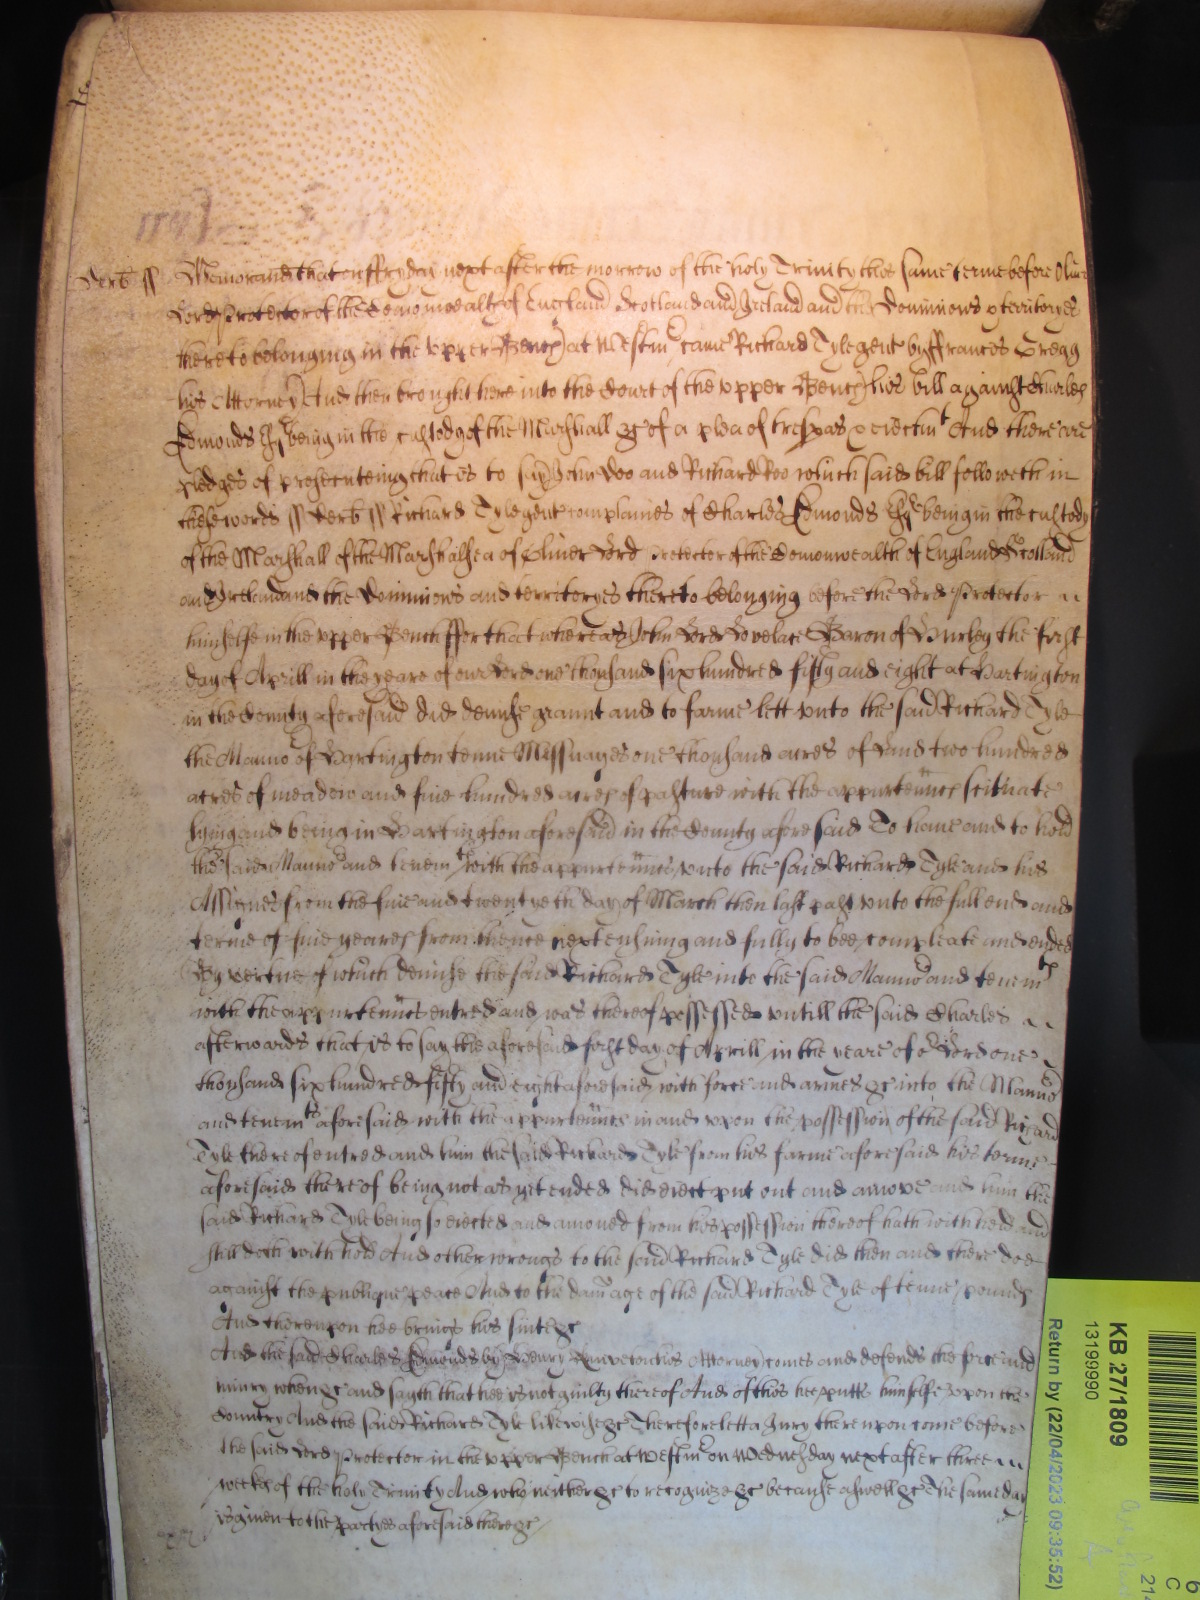 Derb ss Memorand that on ffryday next after the morrow of the holy Trinity this same terme before Oliver
Lord Protector of the Comonwealth of England Scotland and Ireland and the Dominions & territoryes
thereto belonging in the upper Bench at Westm came Richard Tyle gent by ffrances Gregg
his Attorney And then brought here into the Court of the upper Bench his bill against Charles
Edmonds Esqr being in the custody of the Marshall &c of a plea of trespas & eiectmt And there are
pledges of prosecuteing that is to say John Doo and Richard Roo which said bill followeth in
these words ss Derb ss Richard Tyle gent complaines of Charles Edmonds Esqr being in the custody
of the Marshall of the Marshalsea of Oliver Lord Protector of the Comonwealth of England Scotland
and Ireland and the Dominions and territoryes thereto belonging before the Lord Protector
himselfe in the upper Bench ffor that whereas John Lord Lovelace Baron of Hurley the first
day of Aprill in the yeare of our Lord one thousand six hundred fifty and eight at Hartington
in the County aforesaid did demise graunt and to farme lett unto the said Richard Tyle
the Mannor of Hartington tenne Messuages one thousand acres of Land two hundred
acres of meadow and five hundred acres of pasture with the appurtennces scituate
lying and being in Hartington aforesaid in the County aforesaid To have and to hold
the said Mannor and tenemts with the appurtennces unto the said Richard Tyle and his
Assignes from the five and twentyeth day of March then last past unto the full end and
terme of five yeares from thence next ensuing and fully to bee compleate and ended
By vertue of which demise the said Richard Tyle into the said Mannor and tenemts
with the appurtennces entred and was thereof possessed untill the said Charles
afterwards that is to say the aforesaid first day of Aprill in the yeare of or Lord one
thousand six hundred fifty and eight aforesaid with force and armes &c into the Mannor
and tenemts aforesaid with the appurtennces in and upon the possession of the said Richard
Tyle thereof entred and him the said Richard Tyle from his farme aforesaid his terme
aforesaid thereof being not as yet ended did eiect put out and amove and him the
said Richard Tyle being so eiected and amoved from his possession thereof hath withheld and
still doth withhold And other wrongs to the said Richard Tyle did then and there doe
against the publique peace And to the damage of the said Richard Tyle of tenne pounds
And thereupon hee brings his suite &c
And the said Charles Edmonds by Henry his Attorney comes and defends the force and
iniury when &c and sayth that hee is not guilty thereof And of this hee putts himselfe upon the
Country And the said Richard Tyle likewise &c Therefore lett a Jury thereupon come before
the said Lord Protector in the upper Bench at Westm on Wednesday next after three
weeks of the holy Trinity And who neither &c to recognize &c because aswell &c The same day
is given to the partyes aforesaid there &c
KB 27/1809
13199990
Return by (22/04/2023 09:35:52)